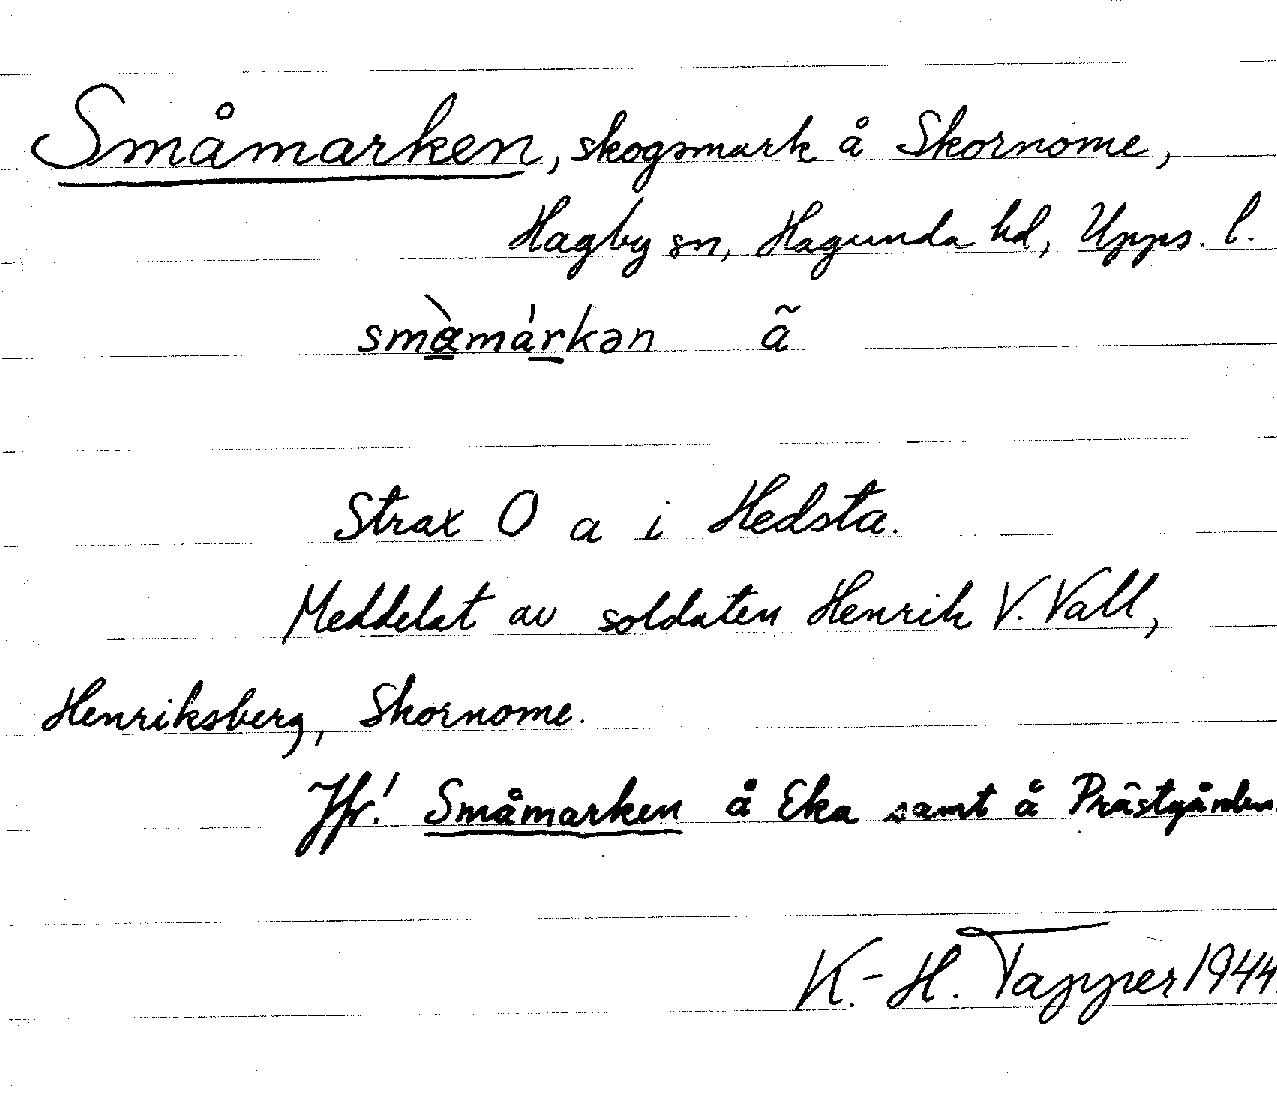 Småmarken, skogsmark å Skornome,
Hagby sn, Hagunda hd, Upps. l.
småmárkən ã
Strax O a i Hedsta.
Meddelat av soldaten Henrik V. Vall,
Henriksberg, Skornome.
Jfr! Småmarken å Eka samt å Prästgården
K.-H. Tapper 1944